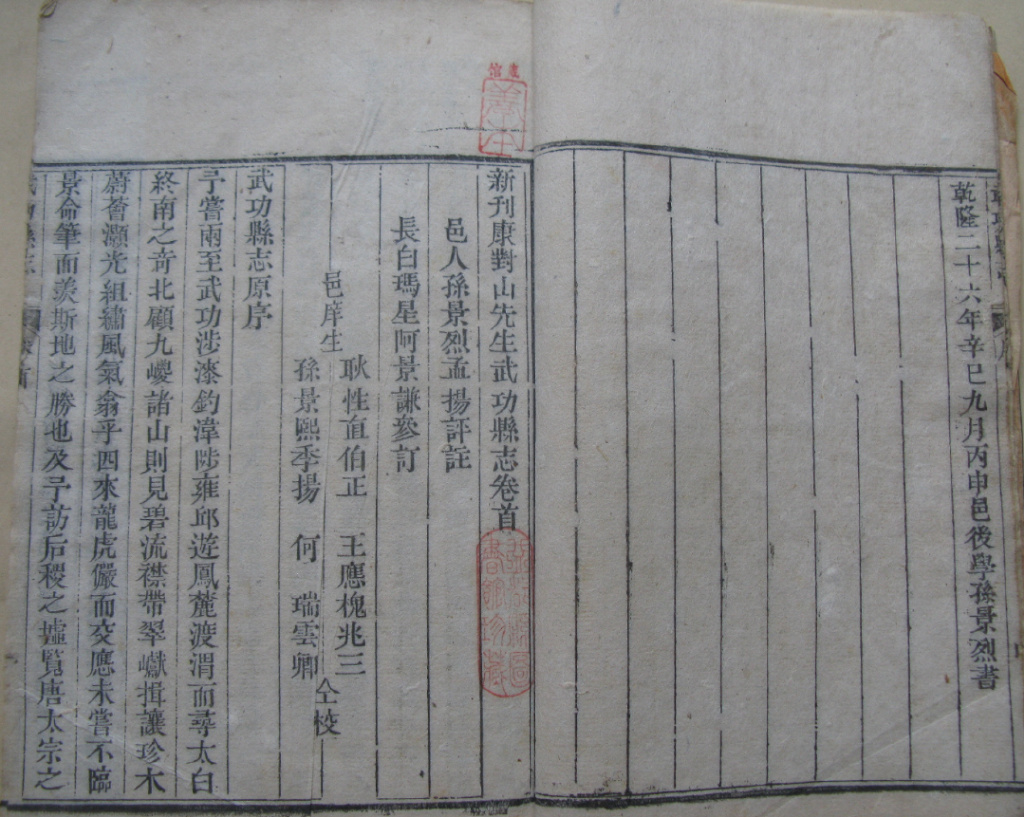 乾隆二十六年辛巳九月丙申邑後學孫景烈書
新刊康對山先生武功縣志卷首
邑人孫景烈孟揚評註
長白瑪星阿景謙參訂
邑庠生
耿性直伯正　王應槐兆三
孫景熙季揚　何　瑞雲卿
仝校
武功縣志原序
予嘗兩至武功涉漆釣湋陟雍邱遊鳳麓渡渭而尋太白
終南之奇北顧九嵕諸山則見碧流襟帶翠巘揖讓珍木
蔚薈灝光組繡風氣翕乎四來龍虎儼而交應未嘗不臨
景命筆而羨斯地之勝也及予訪后稷之墟覽唐太宗之